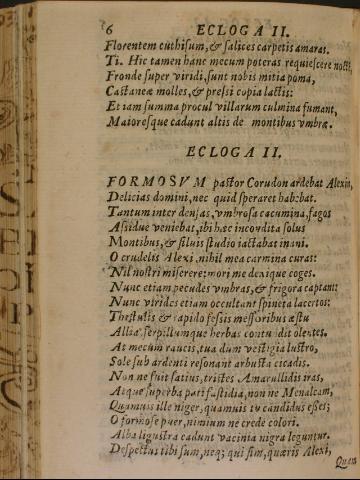 6 ECLOGA II.
Florentem cuthisum, & salices carpetis amaras.
Ti. Hic tamen hanc mecum poteras requiescere nocti,
Fronde super viridi, sunt nobis mitia poma,
Castaneæ molles, & pressi copia lactis:
Et iam summa procul villarum culmina fumant,
Maioresque cadunt altis de montibus vmbræ.
ECLOGA II.
FORMOSVM pastor Corudon ardebat Alexin,
Delicias domini, nec quid speraret habebat.
Tantum inter densas, vmbrosa cacumina, fagos
Assidue veniebat, ibi hæc incondita solus
Montibus, & siluis studio iactabat inani.
O crudelis Alexi, nihil mea carmina curas:
Nil nostri miserere: mori me denique coges.
Nunc etiam pecudes vmbras, & frigora captant:
Nunc virides etiam occultant spineta lacertos:
Thestulis & rapido fessis messoribus æstu
Allia, serpillumque herbas contundit olentes.
At mecum raucis, tua dum vestigia lustro,
Sole sub ardenti resonant arbusta cicadis.
Non ne fuit satius, tristes Amarullidis iras,
Atque superba pati fastidia, non ne Menalcam,
Quamuis ille niger, quamuis tu candidus esses;
O formose puer, nimium ne crede colori.
Alba ligustra cadunt vacinia nigra leguntur.
Despectus tibi sum, neq; qui sim, quæris Alexi,
Quam